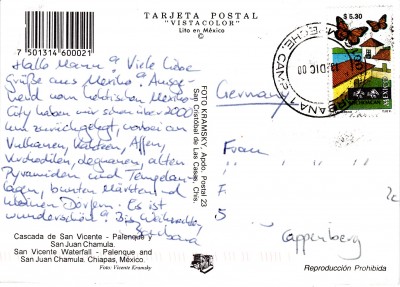 TARJETA POSTAL
"VISTACOLOR"
Lito en México
7 501314 600021
Hallo Mama! Viele liebe
Grüße aus Mexiko! Ausge-
hend vom hektischen Mexico
City haben wir schon über 2000
km zurückgelegt, vorbei an
Vulkanen, Kakteen, Affen,
Krokodilen, Leguanen, alten
Pyramiden und Tempelan-
lagen, bunten Märkten und
kleinen Dörfern. Es ist
wunderschön! Bis Weihnachten
Barbara
Cascada de San Vicente - Palenque y
San Juan Chamula.
San Vicente Waterfall - Palenque and
San Juan Chamula. Chiapas, México.
Foto: Vicente Kramsky
FOTO KRAMSKY. Apdo. Postal 23
San Cristóbal de Las Casas, Chis.
$ 5.30
MEXICO
DIC 00
CAMP
Germany
Frau
5
Cappenberg
Reproducción Prohibida